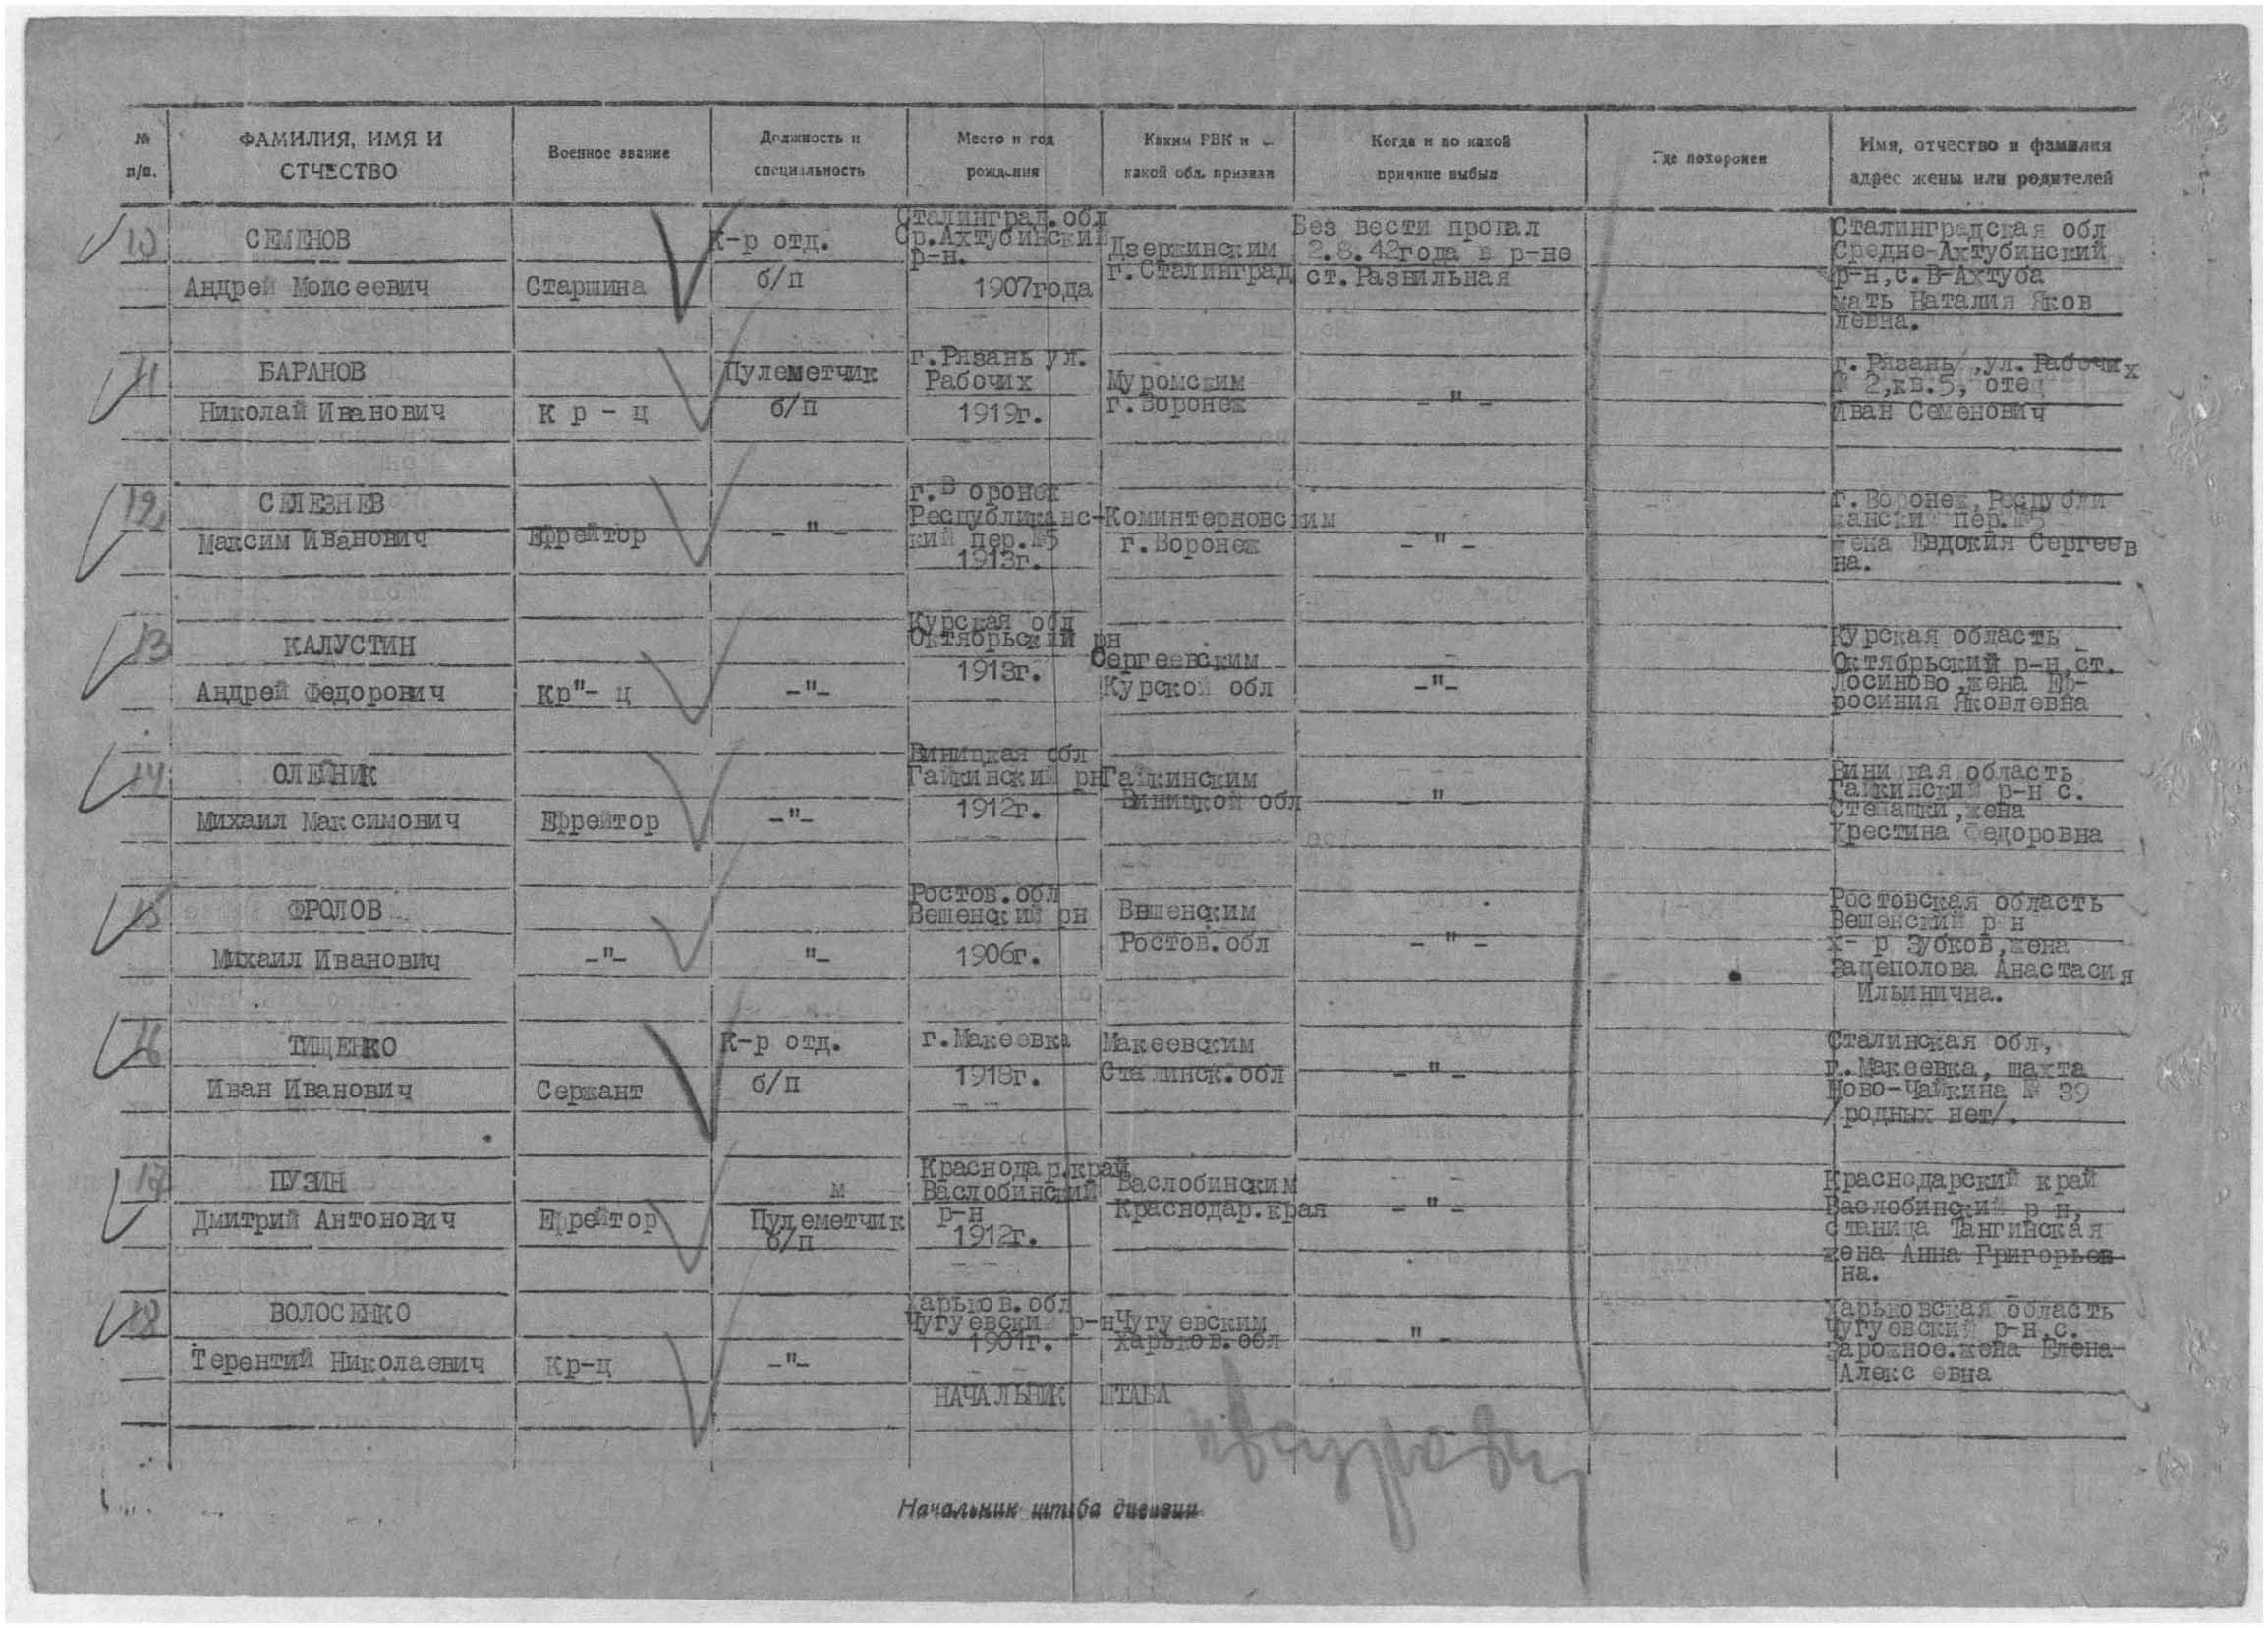 № п/п.
ФАМИЛИЯ, ИМЯ И ОТЧЕСТВО
Военное звание
Должность и специальность
Место и год рождения
Каким РВК и какой обл. призван
Когда и по какой причине выбыл
Где похоронен
Имя, отчество и фамилия адрес жены или родителей
10
СЕМЕНОВ
Андрей Моисеевич
Старшина
К-р отд.
б/п
Сталинград.обл
Ср.Ахтубинский
р-н.
1907года
Дзержинским
г.Сталинград
Без вести пропал
2.8.42года в р-не
ст.Развильная
Сталинградская обл
Средне-Ахтубинский
р-н,с.В-Ахтуба
мать Наталия Яков
левна.
11
БАРАНОВ
Николай Иванович
К р - ц
Пулеметчик
б/п
г.Рязань ул.
Рабочих
1919г.
Муромским
г.Воронеж
-"-
г.Рязань/,ул.Рабочих
№ 2,кв.5, отец
Иван Семенович
12
СЕЛЕЗНЕВ
Максим Иванович
Ефрейтор
-"-
г.Воронеж
Республиканс-
кий пер.№5
1913г.
Коминтерновским
г.Воронеж
-"-
г.Воронеж,Республи
кански пер.№5
жена Евдокия Сергеев
на.
13
КАЛУСТИН
Андрей Федорович
Кр"- ц
-"-
Курская обл
Октябрьский рн
1913г.
Сергеевским
Курской обл
-"-
Курская область
Октябрьский р-н,ст.
Лосиново,жена Еф-
росиния Яковлевна
14
ОЛЕЙНИК
Михаил Максимович
Ефрейтор
-"-
Виницкая обл
Гайкинский рн
1912г.
Гайкинским
Виницкой обл
-"-
Виницкая область
Гайкинский р-н с.
Степашки,жена
Крестина Федоровна
15
ФРОЛОВ
Михаил Иванович
-"-
"-
Ростов.обл
Вешенский рн
1906г.
Вешенским
Ростов.обл
-"-
Ростовская область
Вешенский р н
х- р Зубков,жена
Зацеполова Анастасия
Ильинична.
16
ТИЩЕНКО
Иван Иванович
Сержант
К-р отд.
б/п
г.Макеевка
1918г.
Макеевским
Сталинск.обл
-"-
Сталинская обл,
г.Макеевка, шахта
Ново-Чайкина № 39
/родных нет/.
17
ПУЗИН
Дмитрий Антонович
Ефрейтор
м
Пулеметчик
б/п
Краснодар.край
Васлобинский
р-н
1912г.
Васлобинским
Краснодар.края
-"-
Краснодарский край
Васлобинский р н,
станица Тангинская
жена Анна Григорьев
на.
18
ВОЛОСЕНКО
Терентий Николаевич
Кр-ц
-"-
Харьков.обл
Чугуевский р-н
1901г.
Чугуевским
Харьков.обл
-"-
Харьковская область
Чугуевский р-н,с.
Зарожное.жена Елена
Алекс евна
НАЧАЛЬНИК ШТАБА
Начальник штаба дивизии